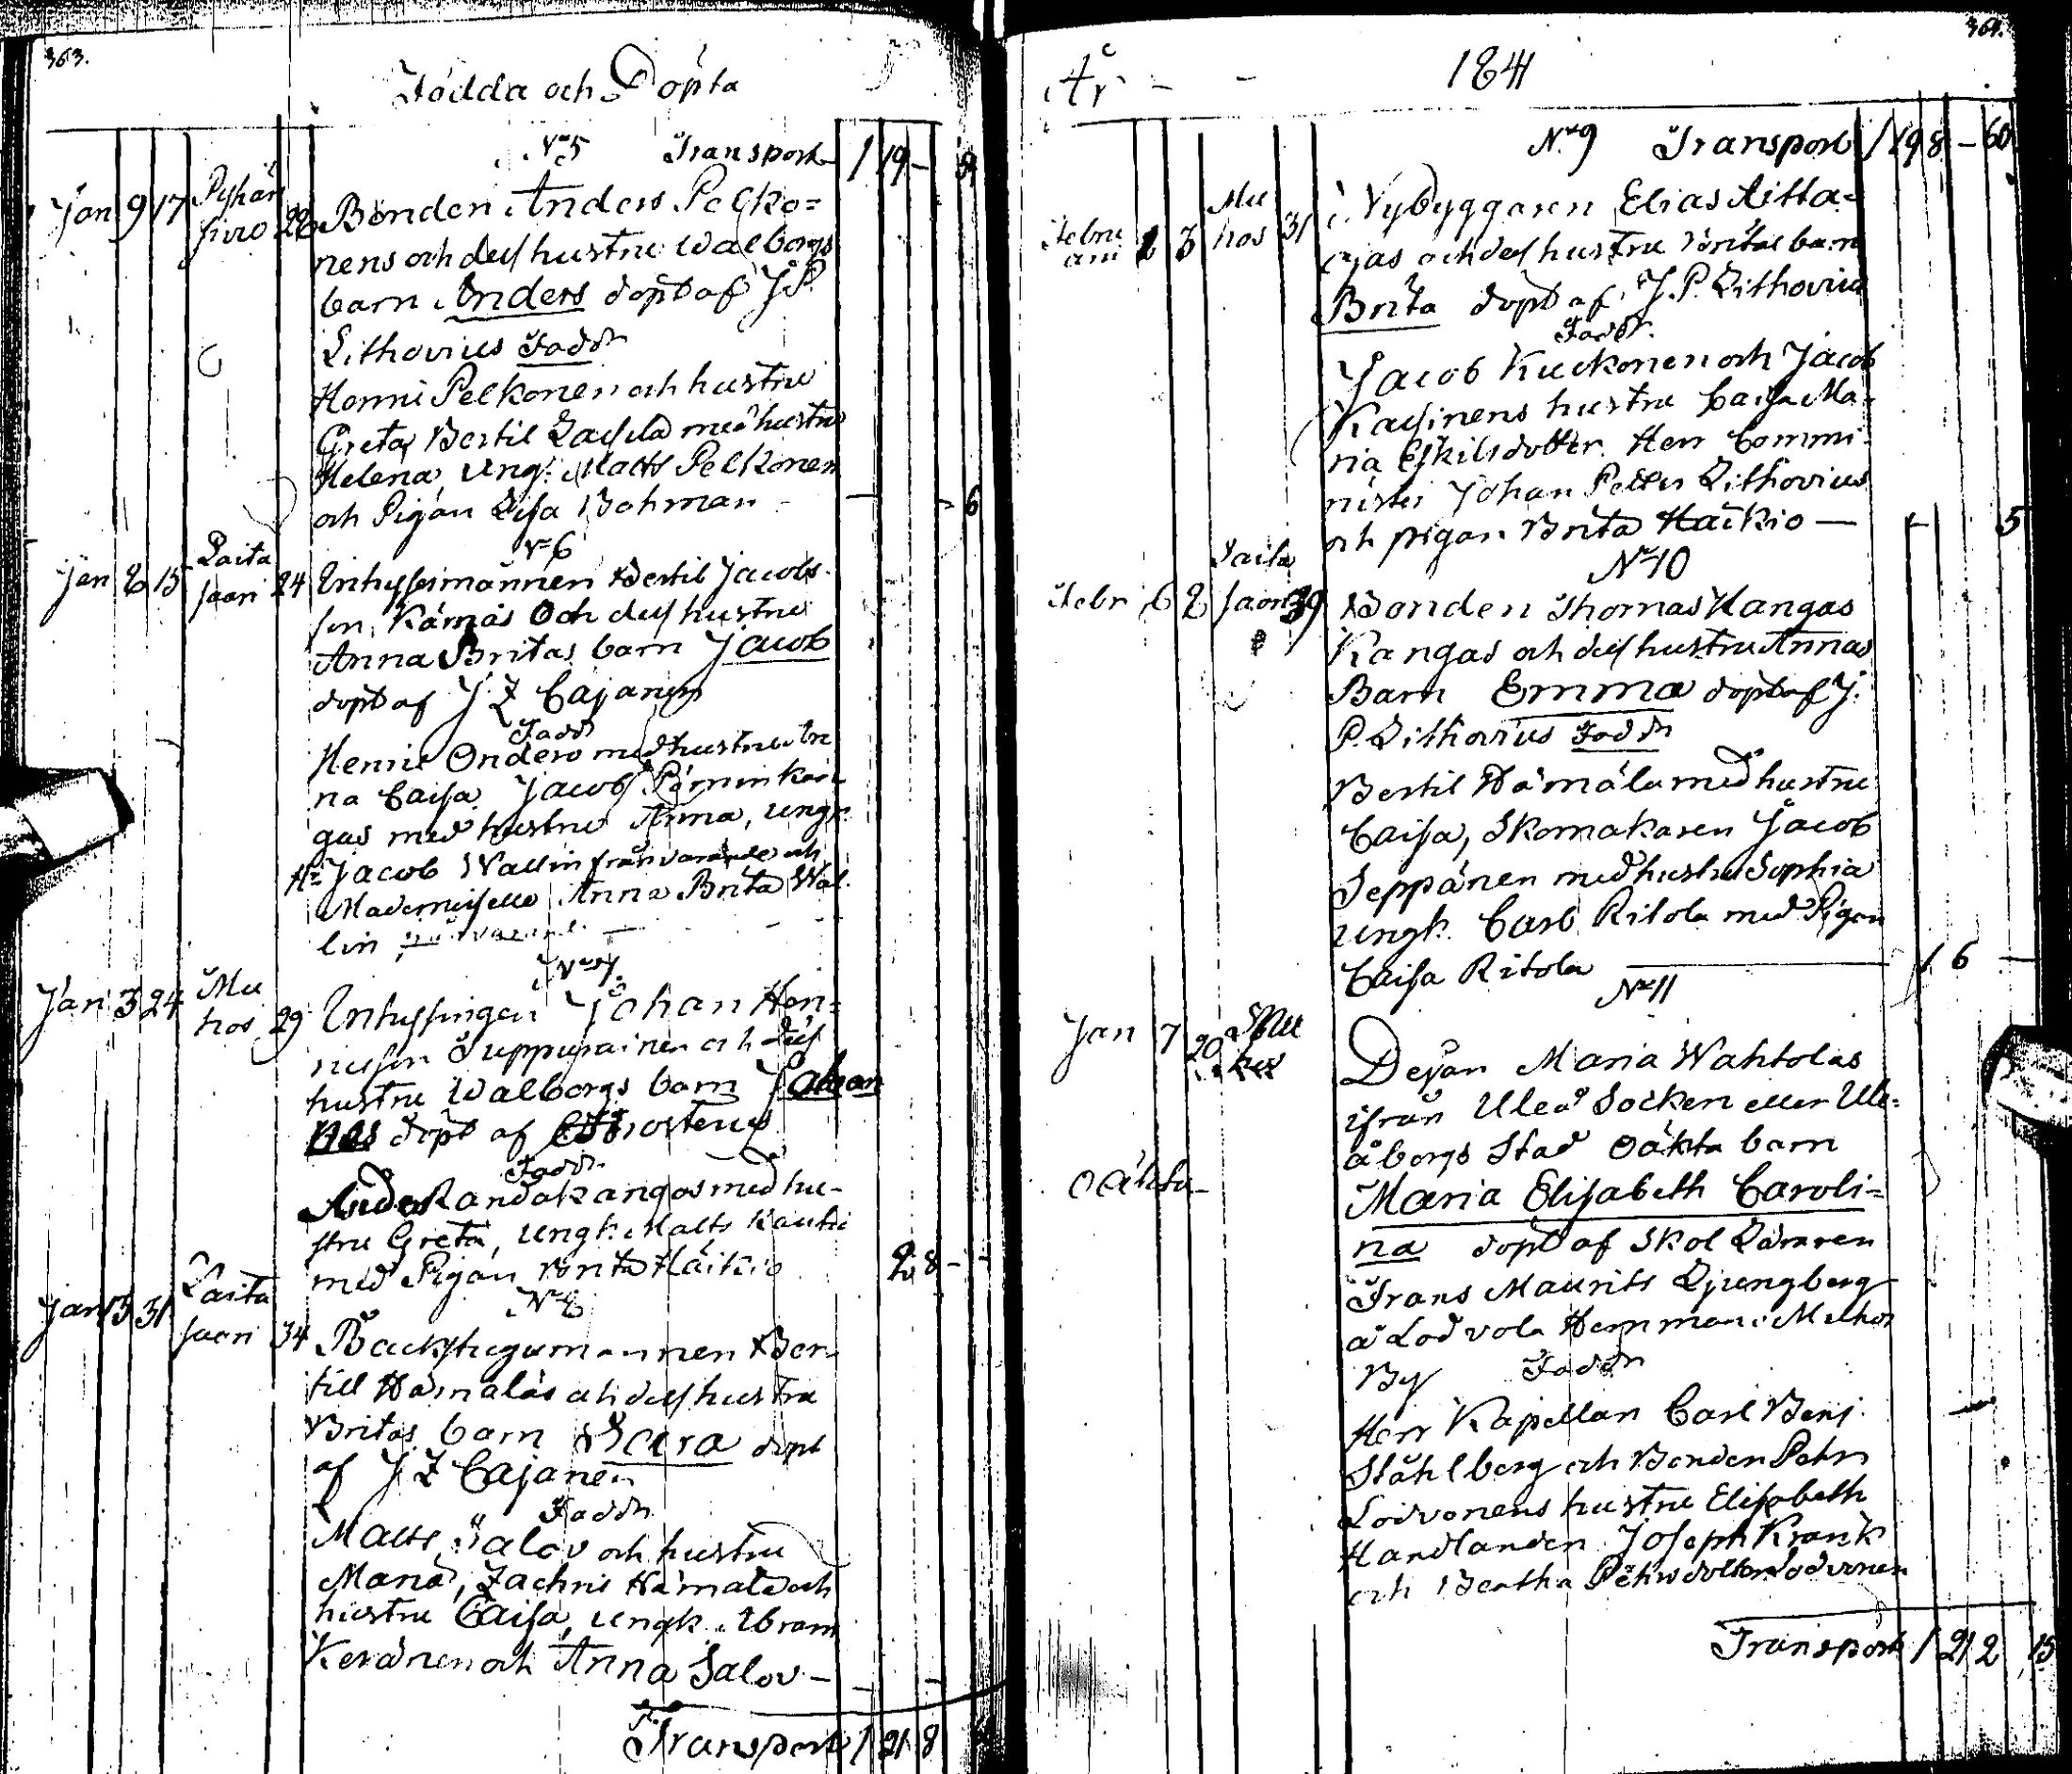 363.
Födda och Döpta
No 5 Transport 1 19 -
Jan 9 17 Pyhän
sivo 28 Bonden Anders Pelko=
nens och dess hustru Walborgs
barn Anders döpt af J P.
Lithovius Faddr
Henric Pelkonen och hustru
Greta, Bertil Laissila med hustru
Helena, Ungk. Matts Pelkonen
och Pigan Lisa Bohman - 6
No 6
Jan 8 15 Laita
saari 24 Inhysesmannen Bertil Jacobs-
son Kämäs Och dess hustru
Anna Britas barn Jacob
döpt af J Z Cajanus
Faddr
Henric Ondero med hustru
na Caisa Jacob
gas med hustru Anna, Ungk.
Hr Jacob Wallin frånvarande och
Mademoiselle Anna Brita Wal-
lin
No 7.
Jan 3 24 Mu
hos 29 Inhysingen Johan Hen=
ricsson Suppurainen och dess
hustru Walborgs barn Johan
döpt af
Faddr
Kandakangas med hu-
stru Greta, Ungk. Matts
med Pigan Brita Häikiö 2 8 -
No 8
Jan 13 31 Laita
saari 34 Backstugumannen Ber-
till Hämäläs och dess hustru
Britas barn Saara döpt
af J Z Cajanus
Faddr
Matts Salov och hustru
Maria, Zachris Hämälä och
hustru Caisa, Ungk. Abram
Keränen och Anna Salov -
Transport 1 21 8
364.
År - - 1841
No 9 Transport 1 19 8 - 60
Febru
arii 2 3 Mu
hos 31 Nybyggaren Elias Aitta-
ojas och dess hustru Britas barn
Brita döpt af J. P. Lithovius
Faddr.
Jacob Kuckonen och Jacob
Kassinens hustru Caisa Ma-
ria Eskilsdotter. Herr Commi-
nister Johan Petter Lithovius
och pigan Brita Häikiö — 5
No 10
Febr 6 8 Laita
saari 39 Bonden Thomas Kangas
Kangas och dess hustru Annas
Barn Emma döpt af J.
P. Lithovius Faddr
Bertil Hämälä med hustru
Caisa, Skomakaren Jacob
Seppänen med hustru Sophia
Ungk. Carl Ritola med Pigan
Caisa Ritola 1 6 -
No 11
Jan 7 20 Mu
hos Dejan Maria Wahtolas
ifrån Uleå Socken eller Ule-
åborgs Stad Oäkta barn
Oäkta Maria Elisabeth Caroli=
na döpt af Skol Läraren
Frans Maurits Ljungberg
å Lodvola Hemman i Muhos
By Faddr
Herr Kapellan Carl Benj.
Ståhlberg och Bonden Pehr
Lodvonens hustru Elisabeth
Handlanden Joseph Krank
och Beatha Pehrsdotter Lodvonen
Transport 1 21 2 15